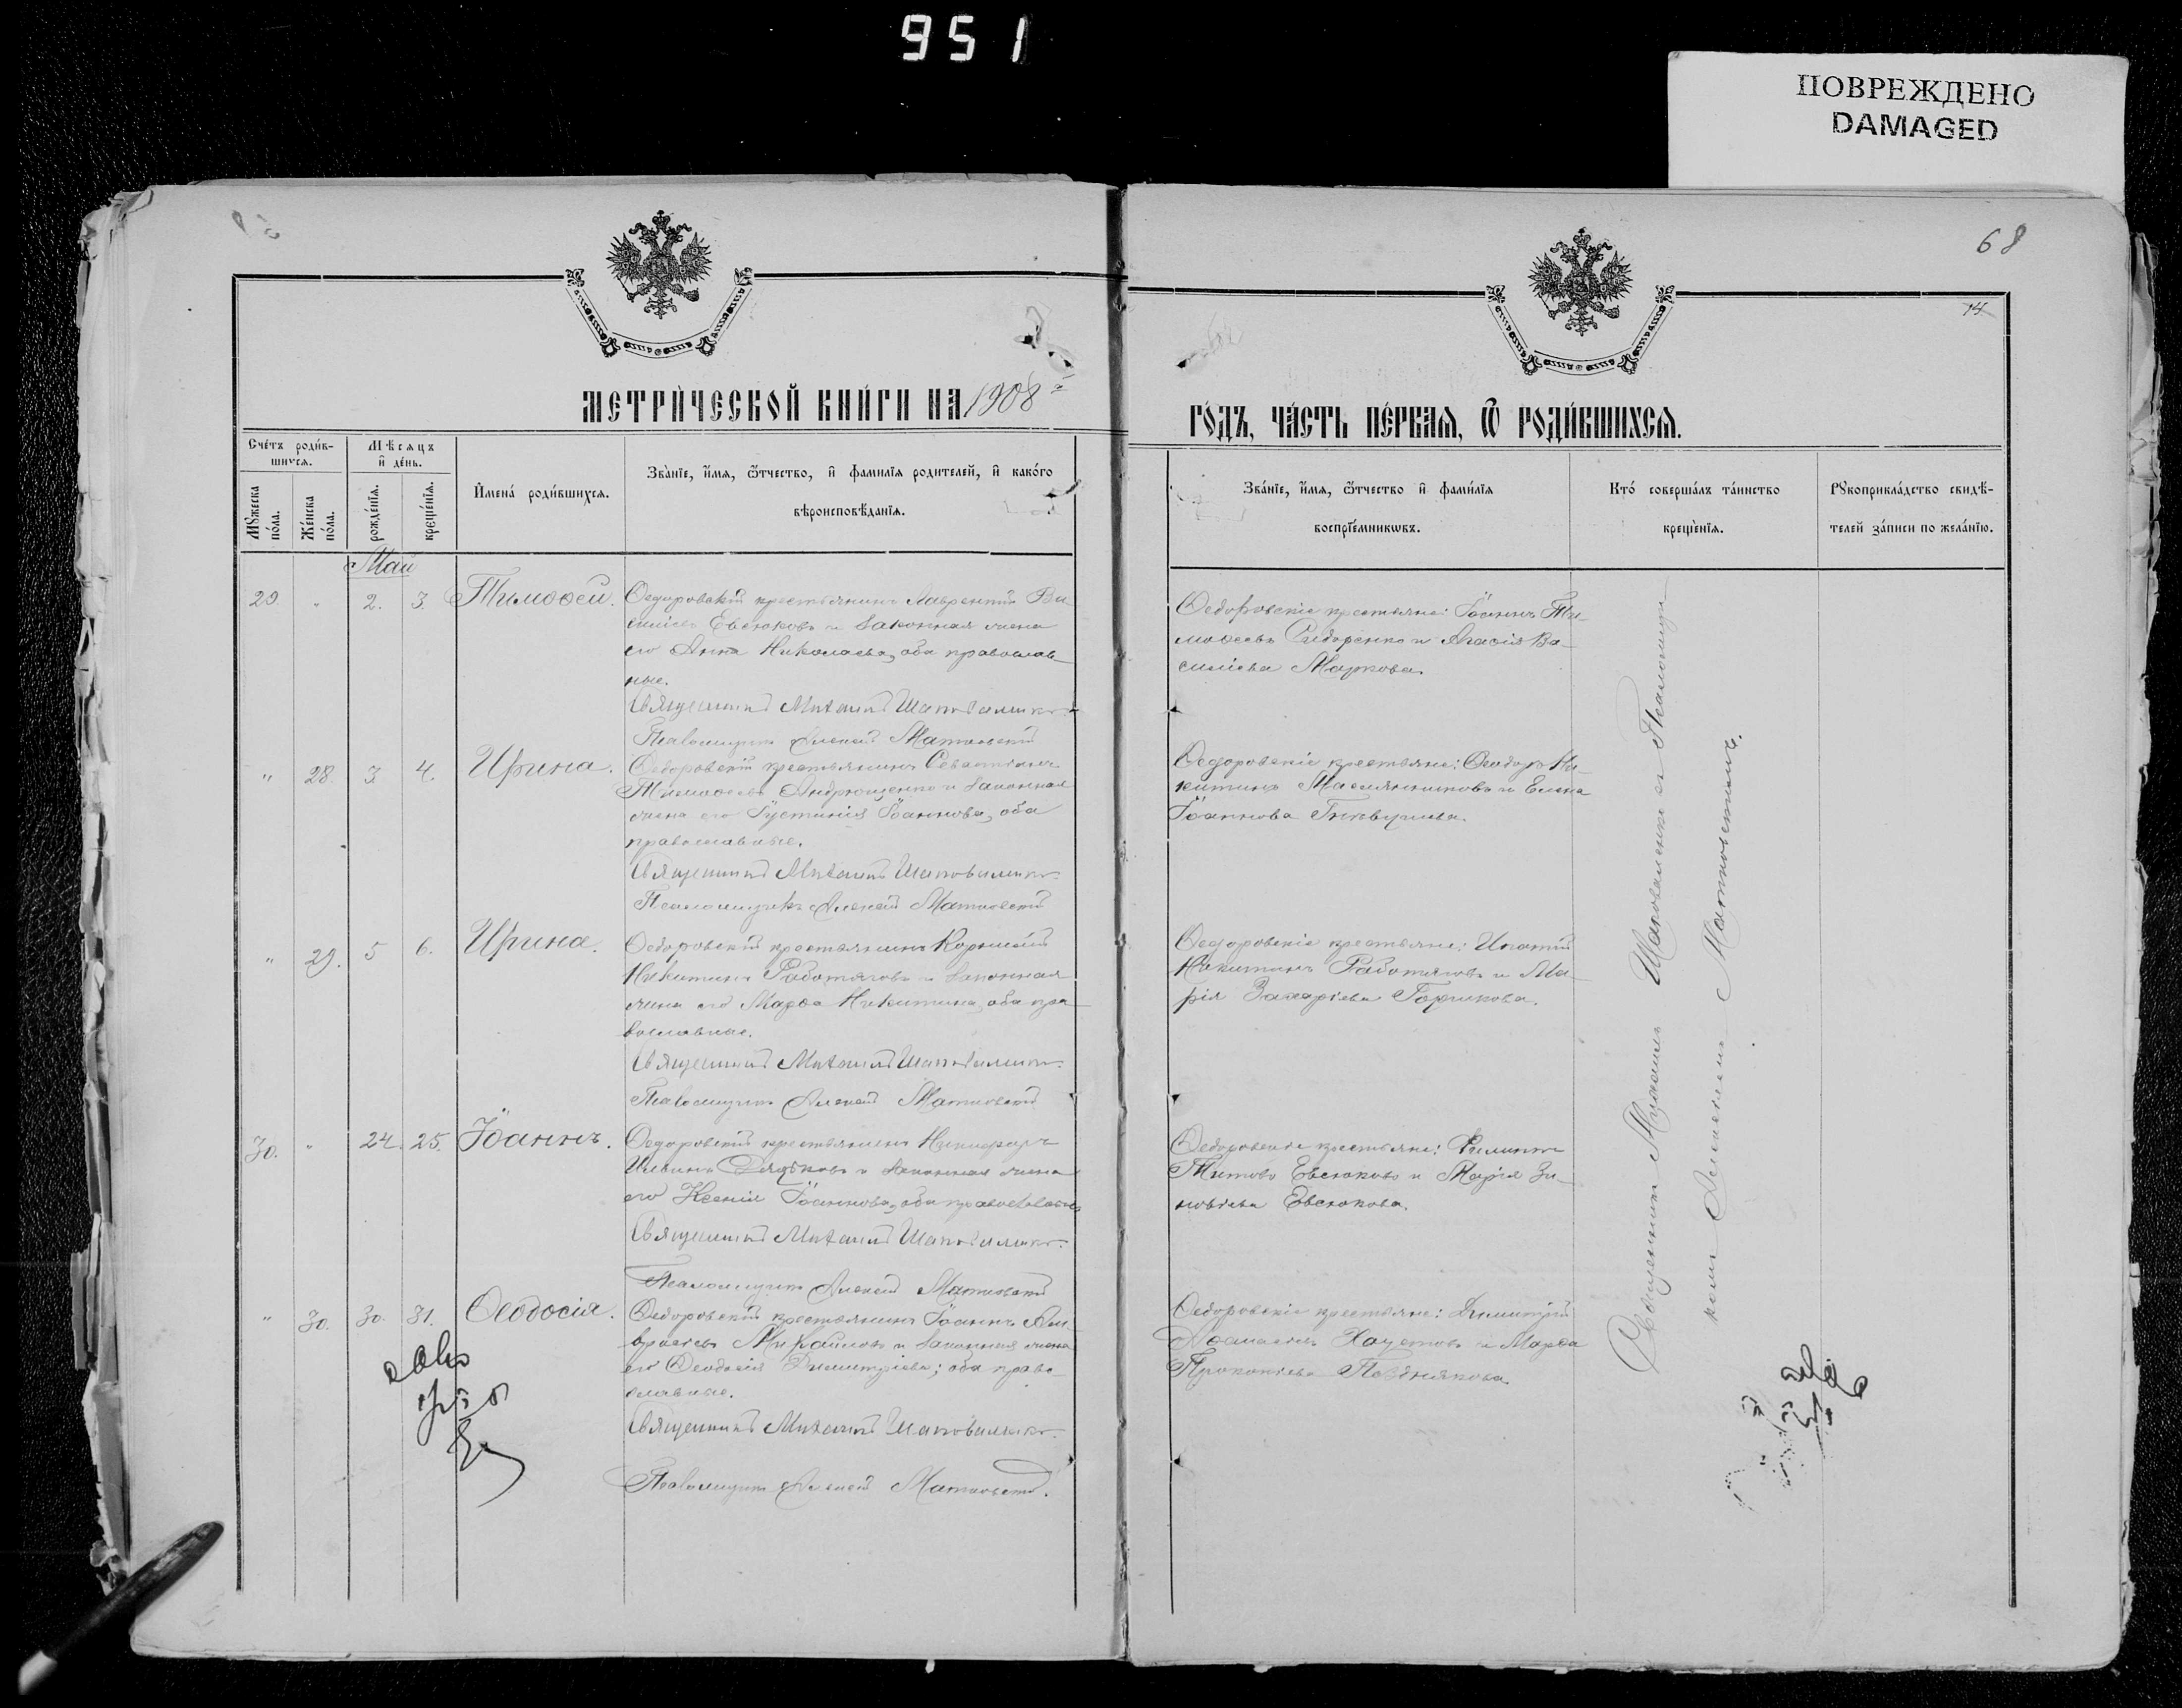 951
ПОВРЕЖДЕНО
DAMAGED
68
14
МЕТРИ́ЧЕСКОЙ КНИ́ГИ НА 1908 й
ГО́ДЪ, ЧА́СТЬ ПЕ́РВАЯ, Ѿ РОДИ́ВШИХСЯ.
Сче́тъ роди́в-
шихся.
Мѣсяцъ
и де́нь.
Мꙋжеска по́ла.
Же́нска по́ла.
рожде́нїя.
креще́нїя.
Имена́ роди́вшихся.
Зва́нїе, и́мя, ѻ́тчество, и фами́лїя родителей, и како́го
вѣроисповѣданїя.
Зва́нїе, и́мя, ѻ́тчество и фами́лїя
воспрїе́мникѡвъ.
Кто́ соверша́лъ та́инство
креще́нїя.
Рꙋкоприкла́дство свидѣ́-
телей за́писи по жела́нїю.
Май
29. " 2. 3. Тимоѳей.
Ѳедоровскій крестьянинъ Лаврентій Ва-
силіевъ Евсюковъ и законная жена
его Анна Николаева, оба православ-
ные.
Священникъ Михаилъ Шаповаленко.
Псаломщикъ Алексей Матновскій
Ѳедоровскіе крестьяне: Іоаннъ Ти-
моѳеевъ Сидоренко и Агаѳія Ва-
силіева Маркова.
" 28. 3. 4. Ирина.
Ѳедоровскій крестьянинъ Севастіанъ
Тимоѳеевъ Андрющенко и законная
жена его Іустинія Іоаннова, оба
православные.
Священникъ Михаилъ Шаповаленко.
Псаломщикъ Алексей Матновскій
Ѳедоровскіе крестьяне: Ѳеодоръ Ни-
китинъ Маслянниковъ и Елена
Іоаннова
" 29. 5 6. Ирина.
Ѳедоровскій крестьянинъ Корнилій
Никитинъ Работяговъ и законная
жена его Марѳа Никитина, оба пра-
вославные.
Священникъ Михаилъ Шаповаленко.
Псаломщикъ Алексей Матновскій
Ѳедоровскіе крестьяне: Игнатій
Никитинъ Работяговъ и Ма-
рія Захаріева Горшкова.
30. " 24. 25. Іоаннъ.
Ѳедоровскій крестьянинъ Никифоръ
Ильинъ Дядьковъ и законная жена
его Ксенія Іоаннова, оба православные
Священникъ Михаилъ Шаповаленко.
Псаломщикъ Алексей Матновскій
Ѳедоровскіе крестьяне: Филиппъ
Титовъ Евсюковъ и Марія Зи-
новіева Евсюкова.
" 30. 30. 31. Ѳеодосія.
Ѳедоровскій крестьянинъ Іоаннъ Ам-
вросіевъ Михайловъ и законная жена
его Ѳеодосія Димитріева; оба право-
славные.
Священникъ Михаилъ Шаповаленко.
Псаломщикъ Алексей Матновскій.
Ѳедоровскіе крестьяне: Димитрій
Аѳанасіевъ Хаустовъ и Марѳа
Прокопіева Позднякова.
Священникъ Михаилъ Шаповаленко съ Псаломщи-
комъ Алексеемъ Матновскимъ.